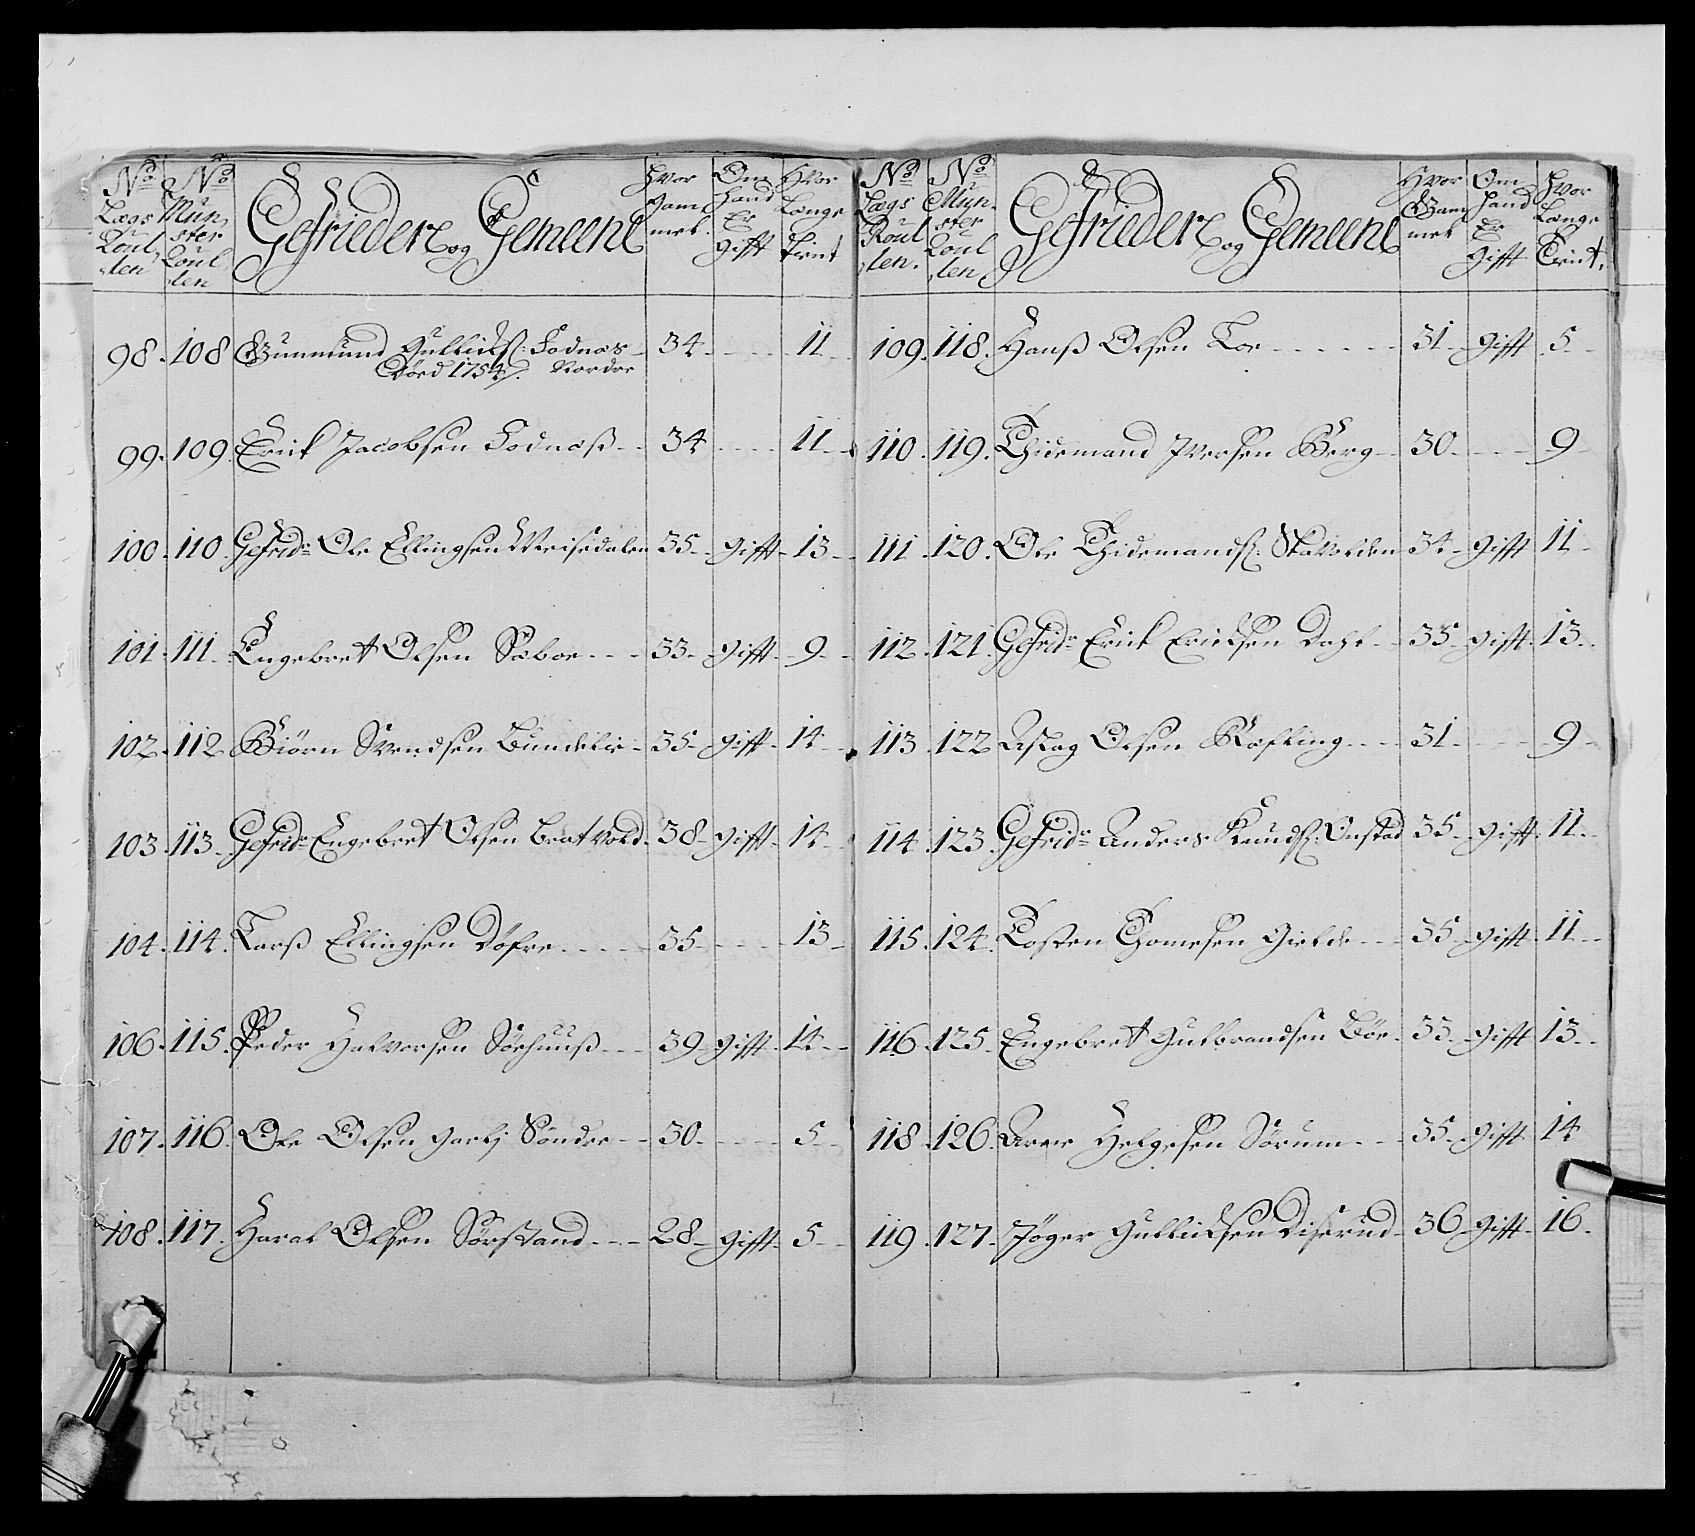 No Lægs Roullen | No Münster Roullen | Gefrieder og Gemeene | Hvor Gammel | Om Hand Er gifft | Hvor Længe tient
98. 108 Gunmund Gullichs: Fodnæs 34 11
Død 1754. Nordre
99. 109. Erick Jacobsen Fodnæß 34 11
100. 110 Gefridr Ole Ellingsen Weisedalen 35 gifft 13
101. 111. Engebret Olsen Sæboe 33 gifft 9
102. 112 Biörn Svendsen Bundelie 35 gifft 14
103. 113. Gefridr Engebret Olsen Bratvold 38 gifft 14
104. 114. Larß Ellingsen Döfre 35 13
106. 115. Peder Halvorsen Söehuuß 39 gifft 14
107. 116. Ole Olsen Garli Söndre 30 5
108. 117. Haral Olsen Sörstand 28 gifft 5
No Lægs Roullen. | No Münster Roullen | Gefrieder og Gemeene | Hvor Gammel | Om Hand Er Gifft | Hvor Længe Tient.
109. 118. Hanß Olsen Loe 31 gifft 5
110. 119. Thidemand Iversen Berg 30 9
111. 120. Ole Thidemands: Skavolden 34 gifft 11
112. 121. Gefridr Erick Ericksen Dahl 35 gifft 13
113. 122 Aslag Olsen Kefling 31 9
114. 123. Gefridr Anders Knuds: Onstad 35 gifft 11
115. 124. Tosten Thomesen Gielde 35 gifft 11
116. 125. Engebret Gulbrandsen Böe 33 gifft 13
118. 126. Arne Helgesen Sörum 35 gifft 14
119. 127. Jöger Gullicksen Diserud 36 gifft 16